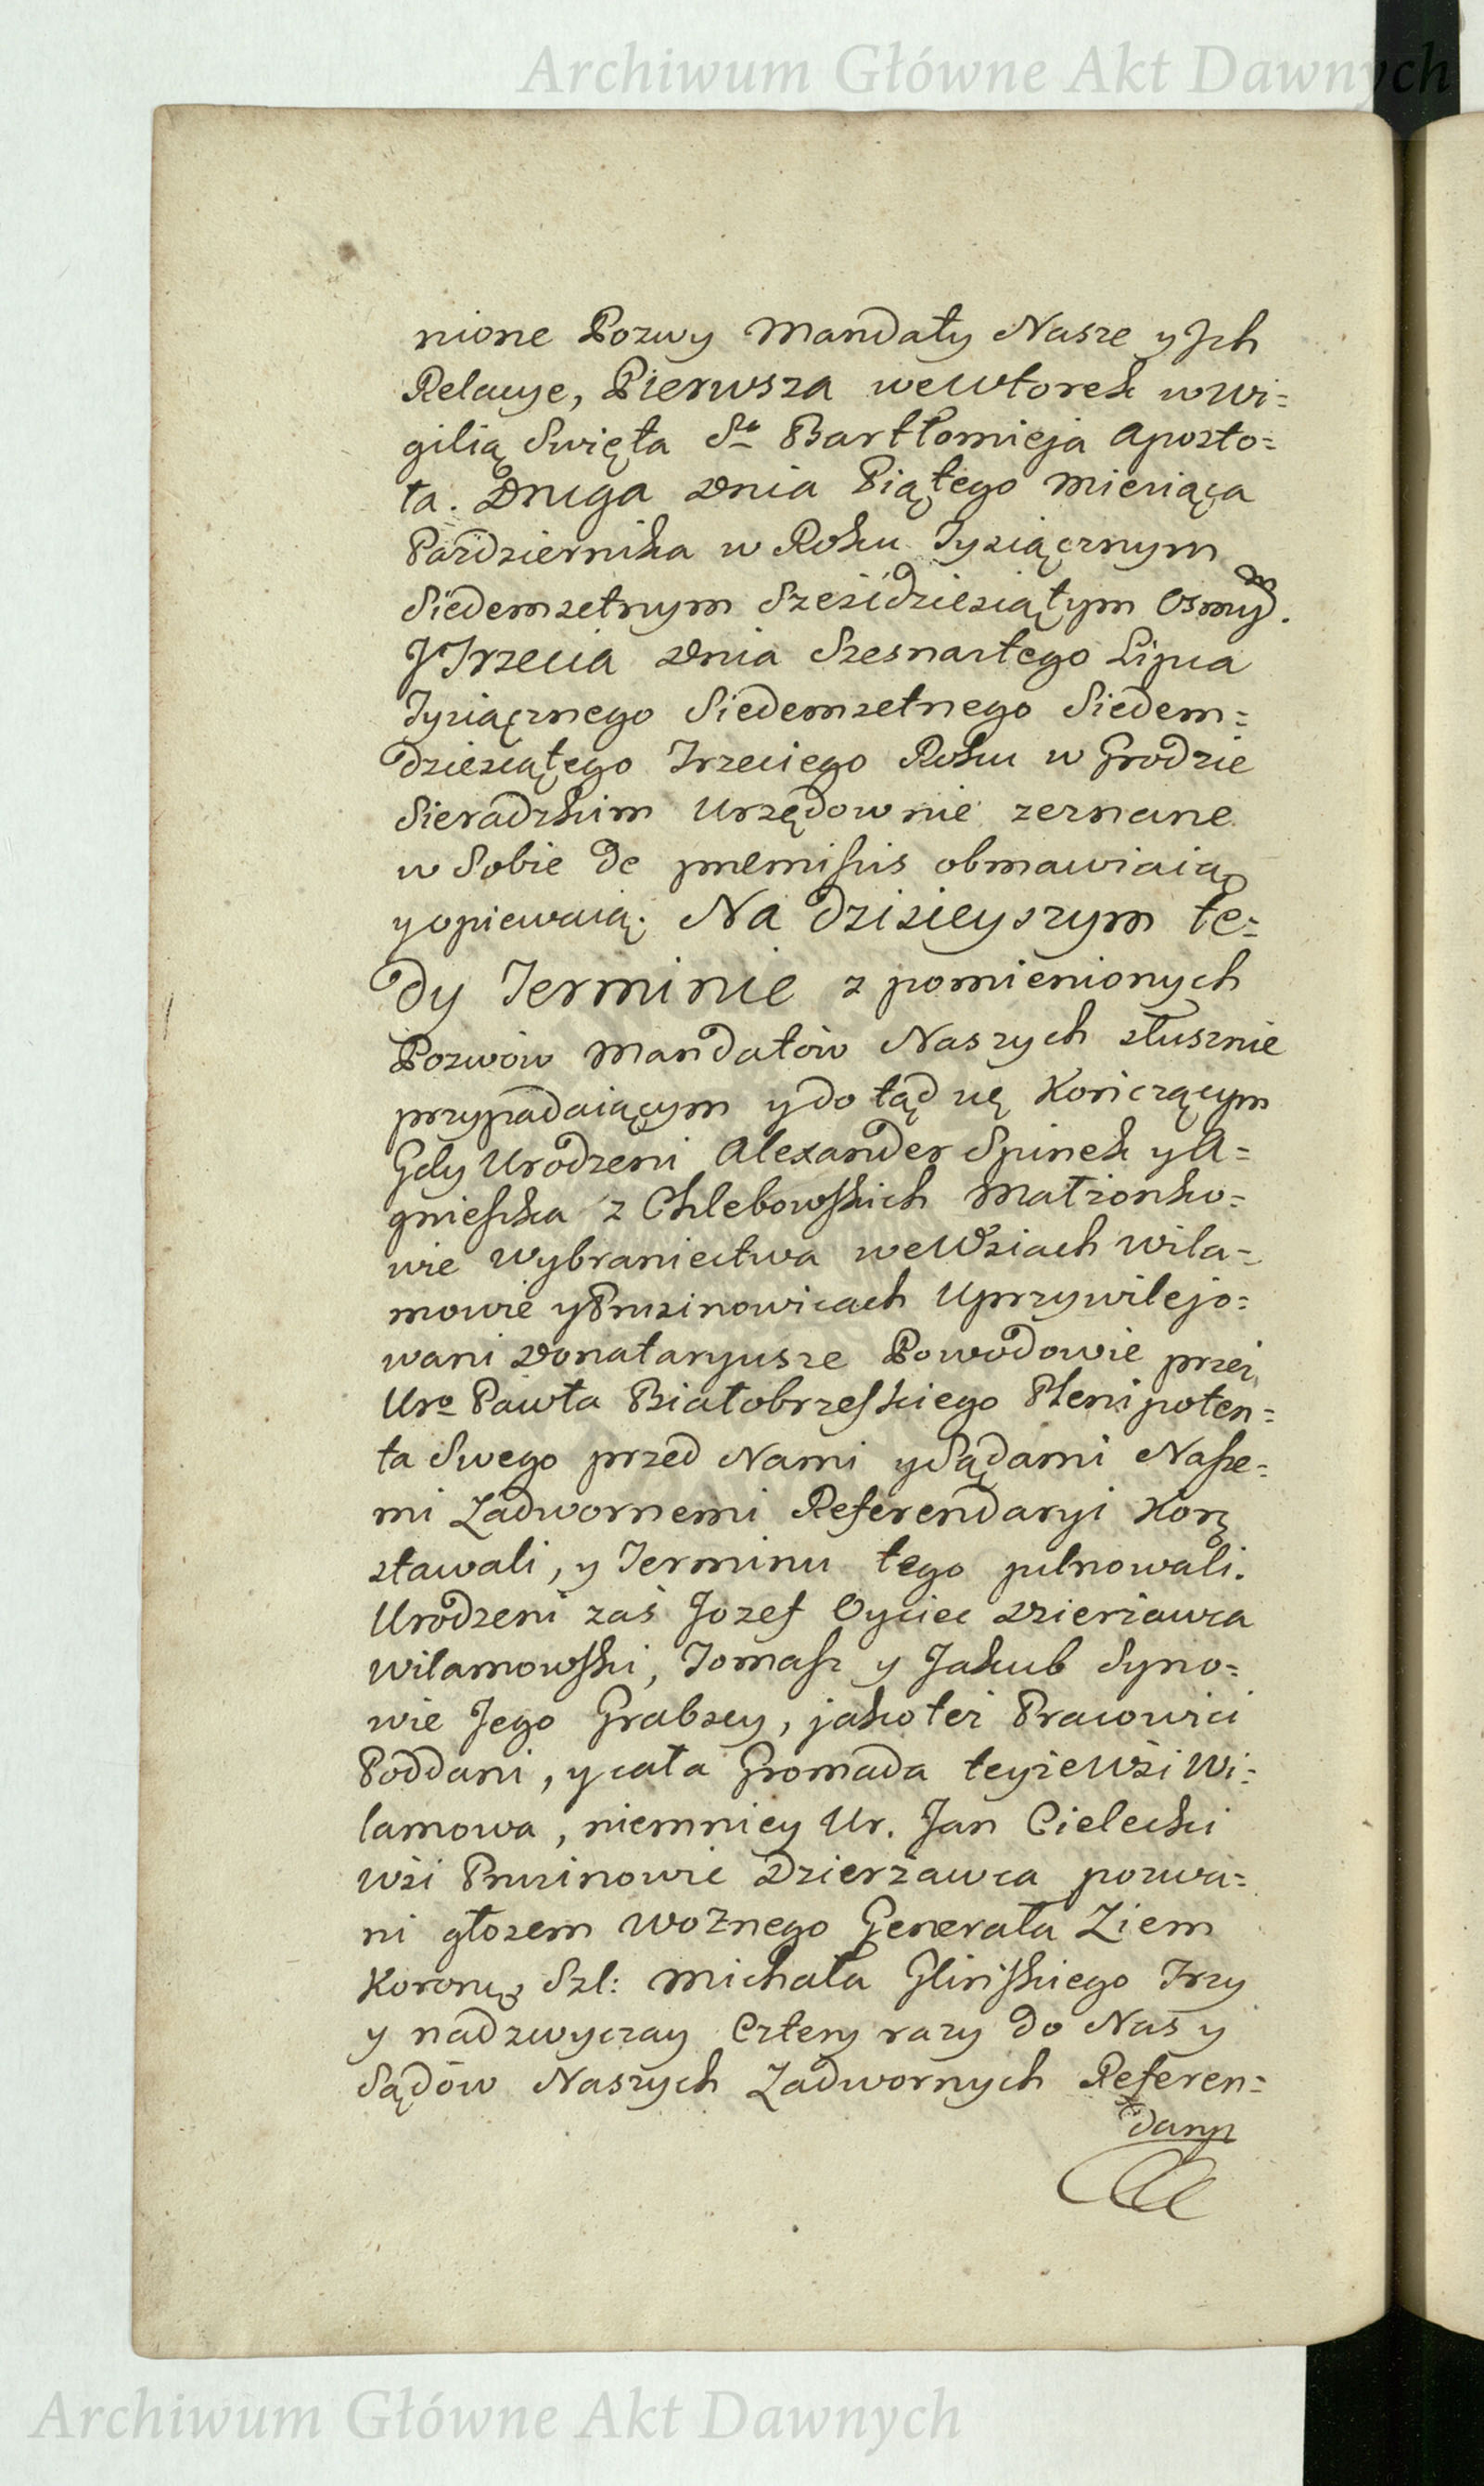 Archiwum Główne Akt Dawnych
nione Pozwy Mandaty Nasze y Jch
Relacye, Pierwsza we Wtorek w Wi=
gilią Swięta Sgo Bartłomieja Aposto=
ła. Druga Dnia Piątego Miesiąca
Pazdziernika w Roku Tysiącznym
Siedemsetnym Sześćdziesiątym Osmym.
J Trzecia Dnia Szesnastego Lipca
Tysiącznego Siedemsetnego Siedem=
dziesiątego Trzeciego Roku w Grodzie
Sieradzkim Urzędownie zeznane
w Sobie de præmissis obmawiaią
y opiewaią. Na dzisieyszym te=
dy Terminie z pomienionych
Pozwów Mandatów Naszych słusznie
przypadaiącym y do tąd się Kończącym
Gdy Urodzeni Alexander Spinek y A=
gnieszka z Chlebowskich Małżonko=
wie Wybraniectwa we Wsiach Wila=
mowie y Prusinowicach Uprzywilejo=
wani Donataryusze Powodowie przez
Uro Pawła Białobrzeskiego Plenipoten=
ta Swego przed Nami y Sądami Nasze=
mi Zadwornemi Referendaryi Korę
stawali, y Terminu tego pilnowali.
Urodzeni zaś Jozef Oyciec Dzierżawca
Wilamowski, Tomasz y Jakub Syno=
wie Jego Grabscy, jako też Pracowici
Poddani, y cała Gromada teyże Wsi Wi=
lamowa, niemniey Ur. Jan Cielecki
Wsi Prusinowic Dzierżawca pozwa=
ni głosem Woźnego Generała Ziem
Koronnę Szl: Michała Glińskiego Trzy
y nadzwyczay Cztery razy do Nas y
Sądów Naszych Zadwornych Referen=
daryi
Archiwum Główne Akt Dawnych